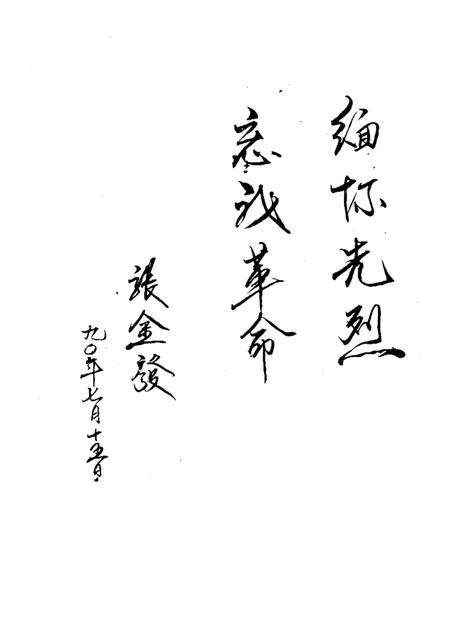 缅怀先烈
志诚革命
張金發
九〇年七月十五日